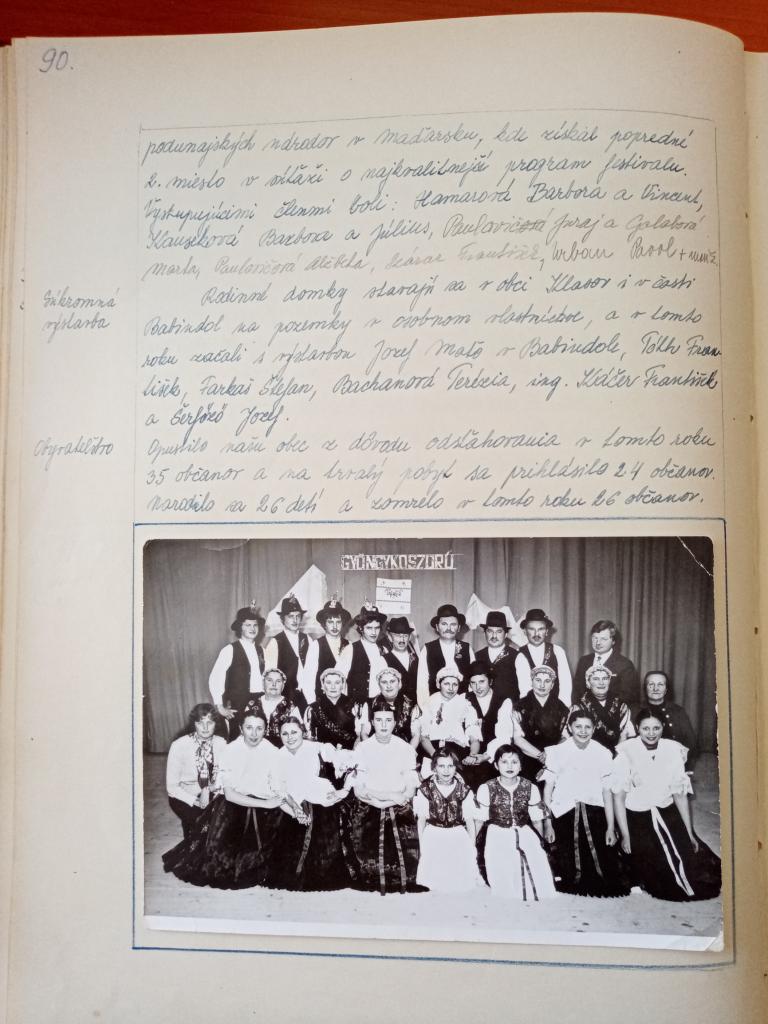 90.
podunajských národov v Maďarsku, kde získal popredné
2. miesto v súťaži o najkvalitnejší program festivalu.
Vystupujúcimi členmi boli: Hamarová Barbora a Vincent,
Klauseková Barbora a Július, Paulovičová Juraj a Galabová
Marta, Paulovičová Alžbeta, František, Urban Pavol +
Súkromná
výstavba
Rodinné domky stavajú sa v obci Klasov i v časti
Babindol na pozemky v osobnom vlastníctve, a v tomto
roku začali s výstavbou Jozef Mató v Babindole, Tóth Fran-
tišek, Farkaš Štefan, Bachanová Terézia, ing. Káčer František
a Šerfőző Jozef.
Obyvateľstvo
Opustilo našu obec z dôvodu odsťahovania v tomto roku
35 občanov a na trvalý pobyt sa prihlásilo 24 občanov.
Narodilo sa 26 detí a zomrelo v tomto roku 26 občanov.
GYÖNGYKOSZORÚ